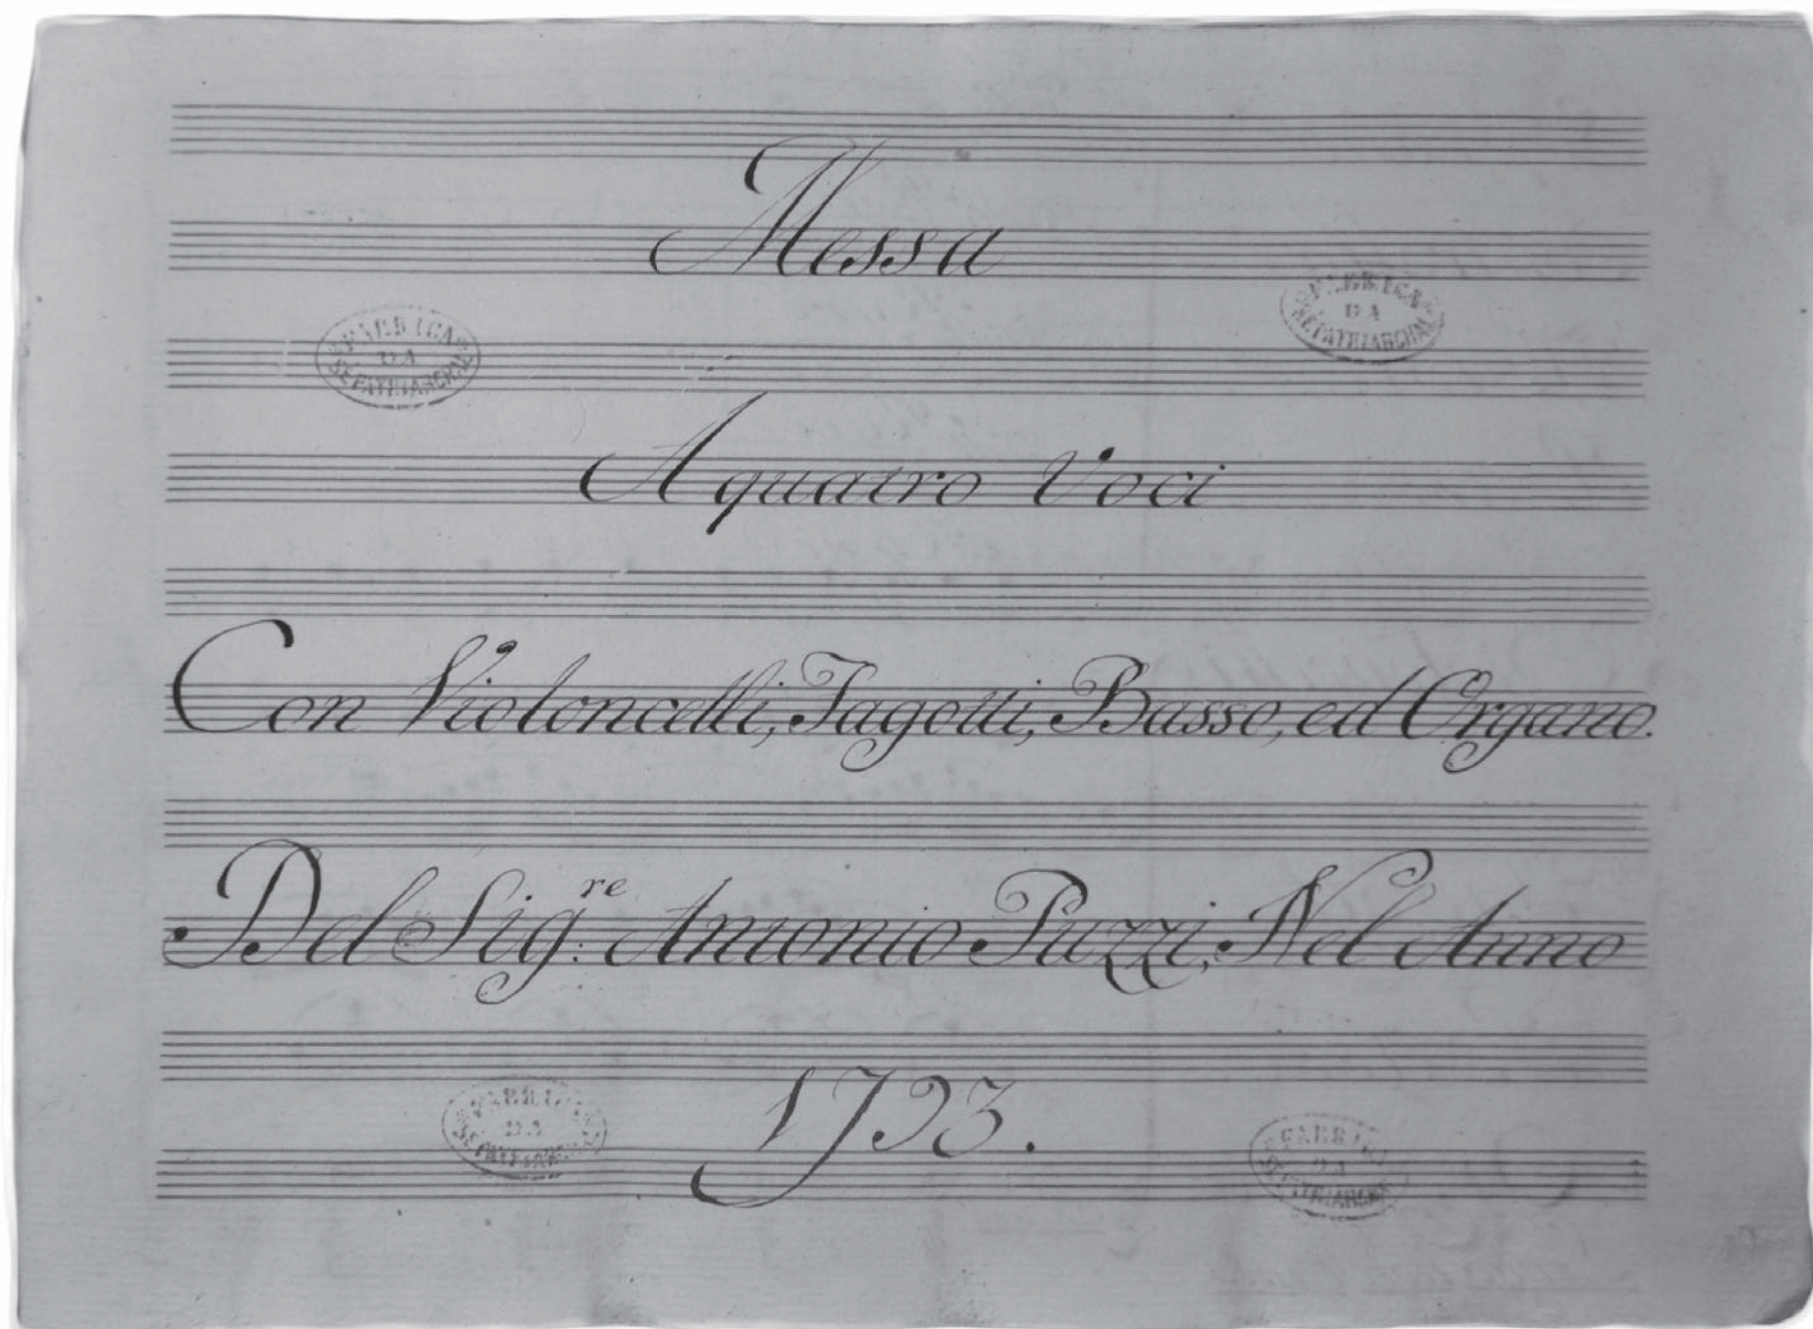 Messa
FABRICA
DA
SE PATRIARCHAL
FABRICA
DA
SE PATRIARCHAL
A quatro Voci
Con Violoncelli, Fagotti, Basso, ed Organo.
Del Sig.re Antonio Puzzi, Nel Anno
1793.
FABRICA
DA
SE PATRIARCHAL
FABRICA
DA
SE PATRIARCHAL